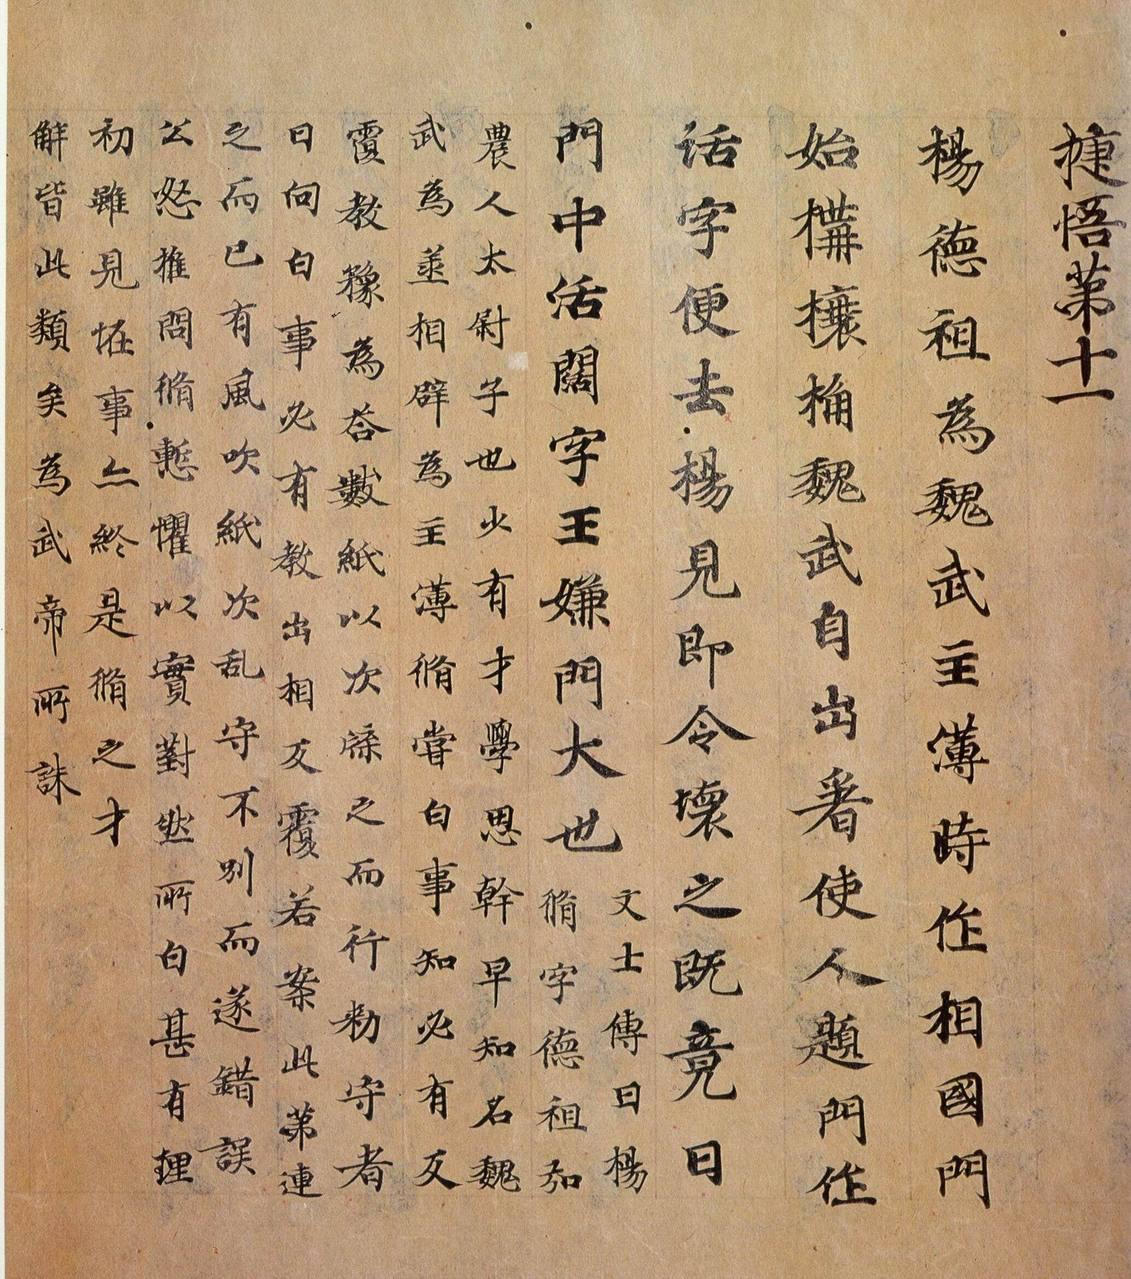 捷悟第十一
楊德祖為魏武主薄時作相國門
始搆攘桷魏武自出署使人題門作
活字便去楊見即令壞之既竟曰
門中活闊字王嫌門大也
文士傳曰楊
脩字德祖弘
農人太尉子也少有才學思幹早知名魏
武為丞相辟為主薄脩甞白事知必有反
覆教豫為荅數紙以次牒之而行勑守者
曰向白事必有教出相反覆若案此第連
之而已有風吹紙次乱守不別而遂錯誤
公怒推問脩慙懼以實對然所白甚有理
初雖見恠事亦終是脩之才
解皆此類矣為武帝所誅